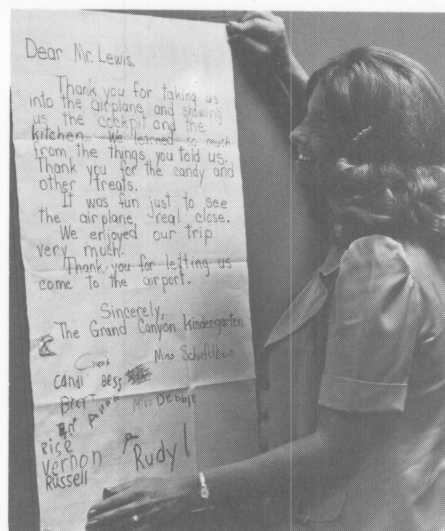 Dear Mr. Lewis,
Thank you for taking us
into the airplane and showing
us the cockpit and the
kitchen. We learned so much
from the things you told us.
Thank you for the candy and
other treats.
It was fun just to see
the airplane real close.
We enjoyed our trip
very much.
Thank you for letting us
come to the airport.
Sincerely,
The Grand Canyon Kindergarten
Miss
Candi Bess
Brett Miss Debbie
Rice
Vernon Rudy
Russell